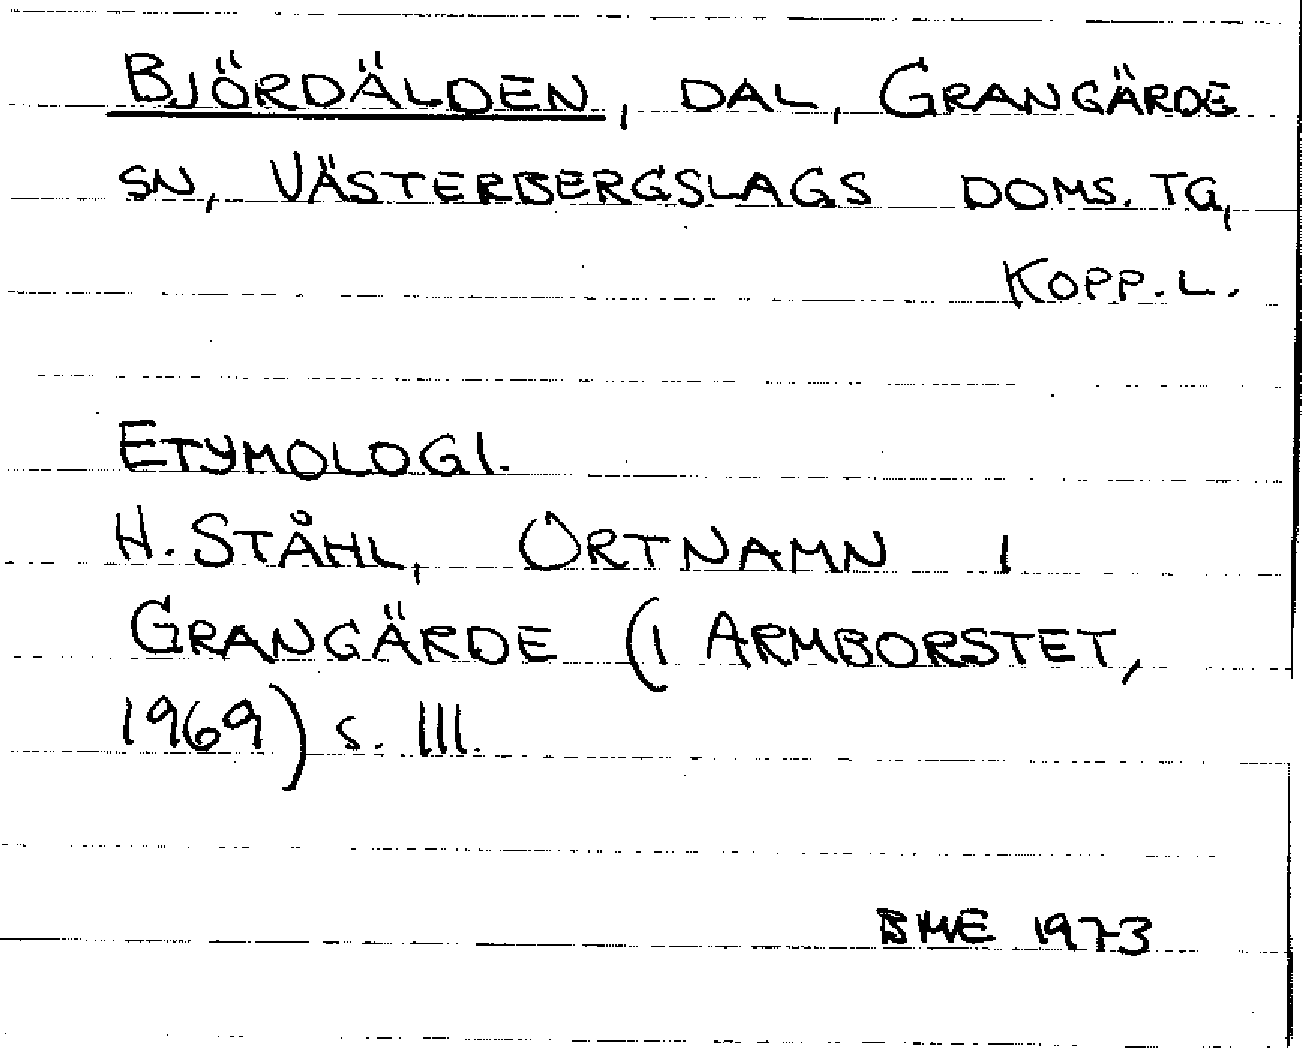 BJÖRDÄLDEN, DAL, GRANGÄRDE
SN, VÄSTERBERGSLAGS DOMS. TG,
KOPP. L.
ETYMOLOGI.
H. STÅHL, ORTNAMN I
GRANGÄRDE (I ARMBORSTET,
1969) s. 111.
BME 1973